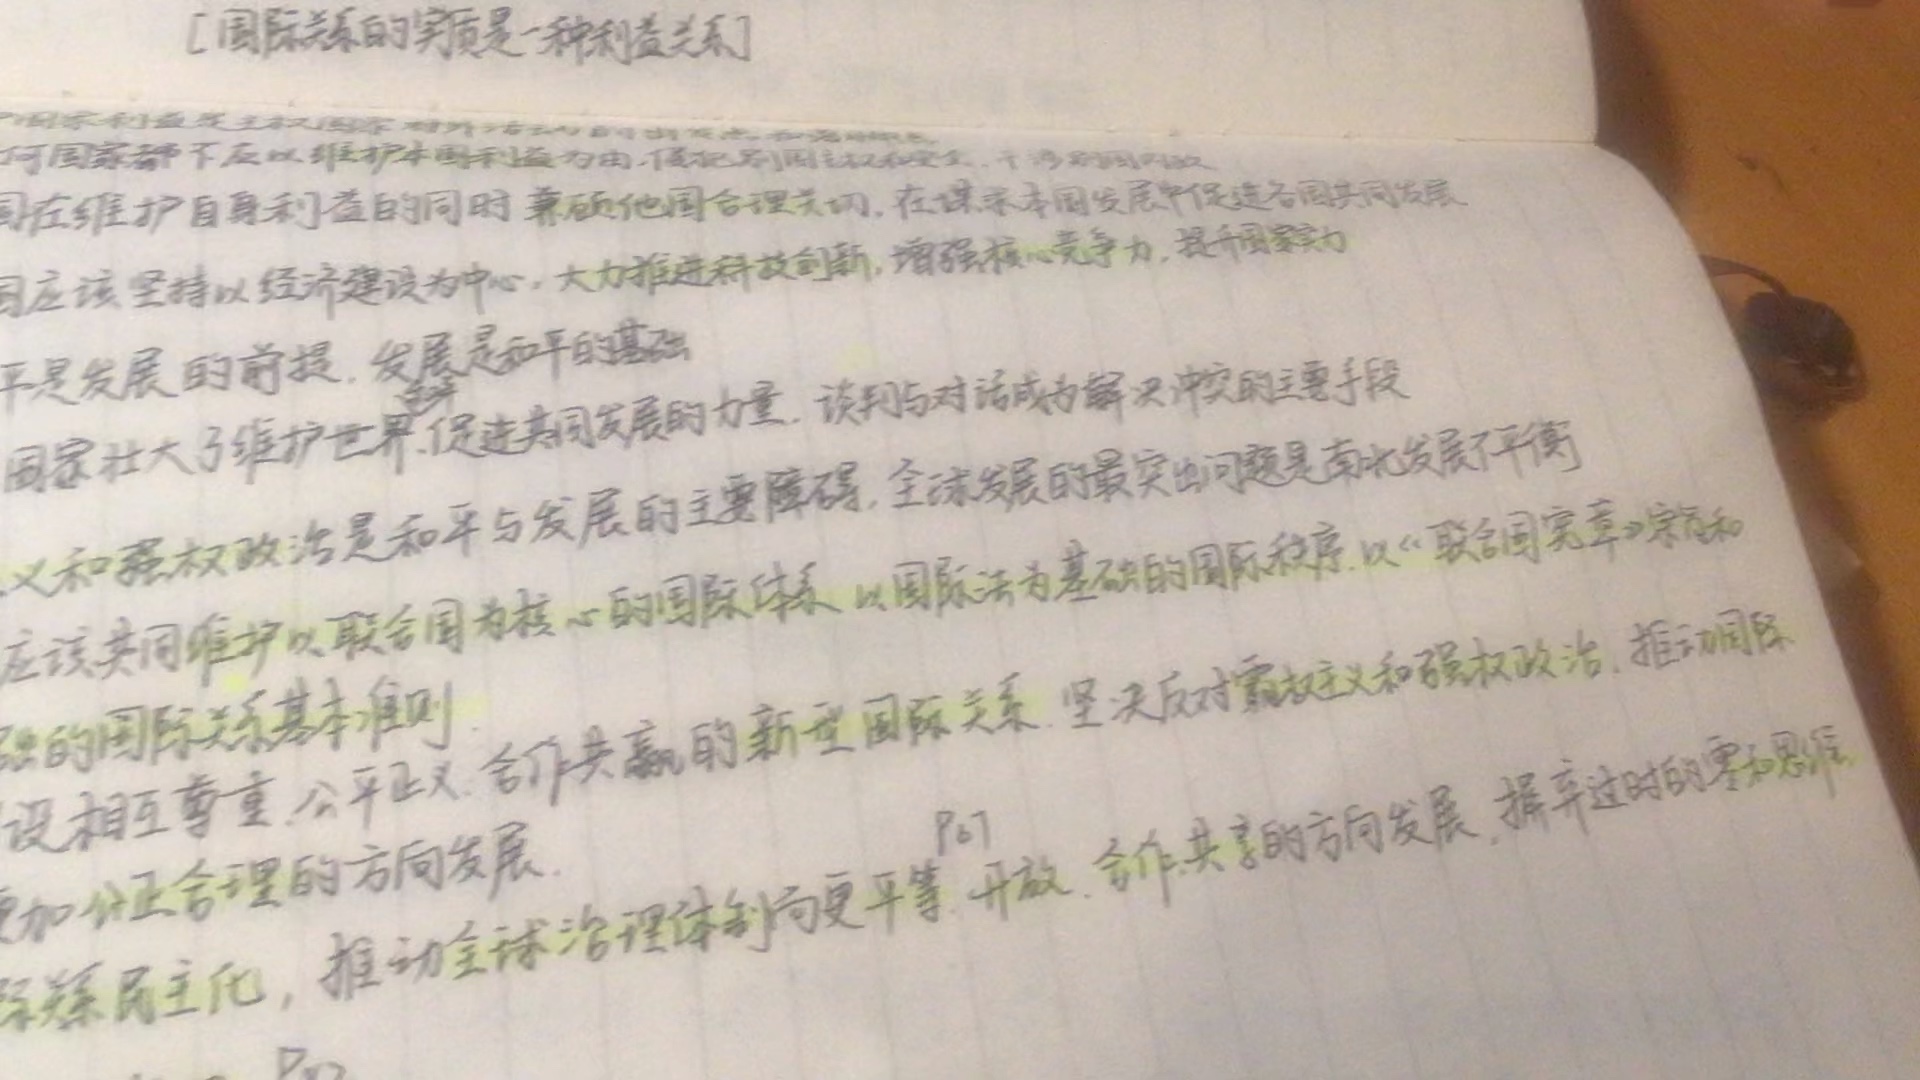 [国际关系的实质是一种利益关系]
国家利益是主权国家对外活动的出发点和落脚点
何国家都不应以维护本国利益为由,侵犯别国主权和安全,干涉别国内政
国在维护自身利益的同时兼顾他国合理关切,在谋求本国发展中促进各国共同发展
国应该坚持以经济建设为中心,大力推进科技创新,增强核心竞争力,提升国家实力
平是发展的前提,发展是和平的基础
国家壮大了维护世界和平、促进共同发展的力量,谈判与对话成为解决冲突的主要手段
义和强权政治是和平与发展的主要障碍,全球发展的最突出问题是南北发展不平衡
应该共同维护以联合国为核心的国际体系 以国际法为基础的国际秩序,以《联合国宪章》宗旨和
础的国际关系基本准则.
设相互尊重、公平正义、合作共赢的新型国际关系,坚决反对霸权主义和强权政治,推动国际
更加公正合理的方向发展.
P67
际关系民主化,推动全球治理体制向更平等、开放、合作、共享的方向发展,摒弃过时的零和思维